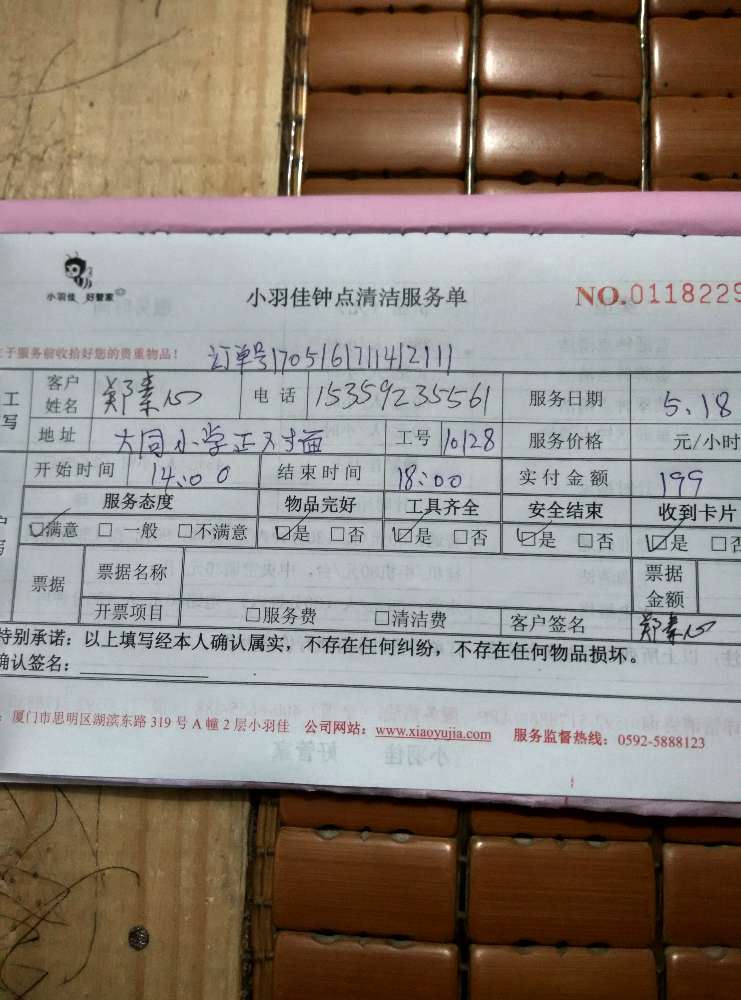 小羽佳 好管家
小羽佳钟点清洁服务单
NO.0118229
于服务前收拾好您的贵重物品!
订单号1705161711412111
工 客户姓名 郑素心 电话 15359235561 服务日期 5.18
写 地址 大同小学正对面 工号 10128 服务价格 元/小时
开始时间 14:00 结束时间 18:00 实付金额 199
服务态度 物品完好 工具齐全 安全结束 收到卡片
☑满意 □一般 □不满意 ☑是 □否 ☑是 □否 ☑是 □否 ☑是 □否
票据 票据名称 票据金额
开票项目 □服务费 □清洁费 客户签名 郑素心
特别承诺:以上填写经本人确认属实,不存在任何纠纷,不存在任何物品损坏。
确认签名:
:厦门市思明区湖滨东路 319 号 A 幢 2 层小羽佳 公司网站:www.xiaoyujia.com 服务监督热线:0592-5888123